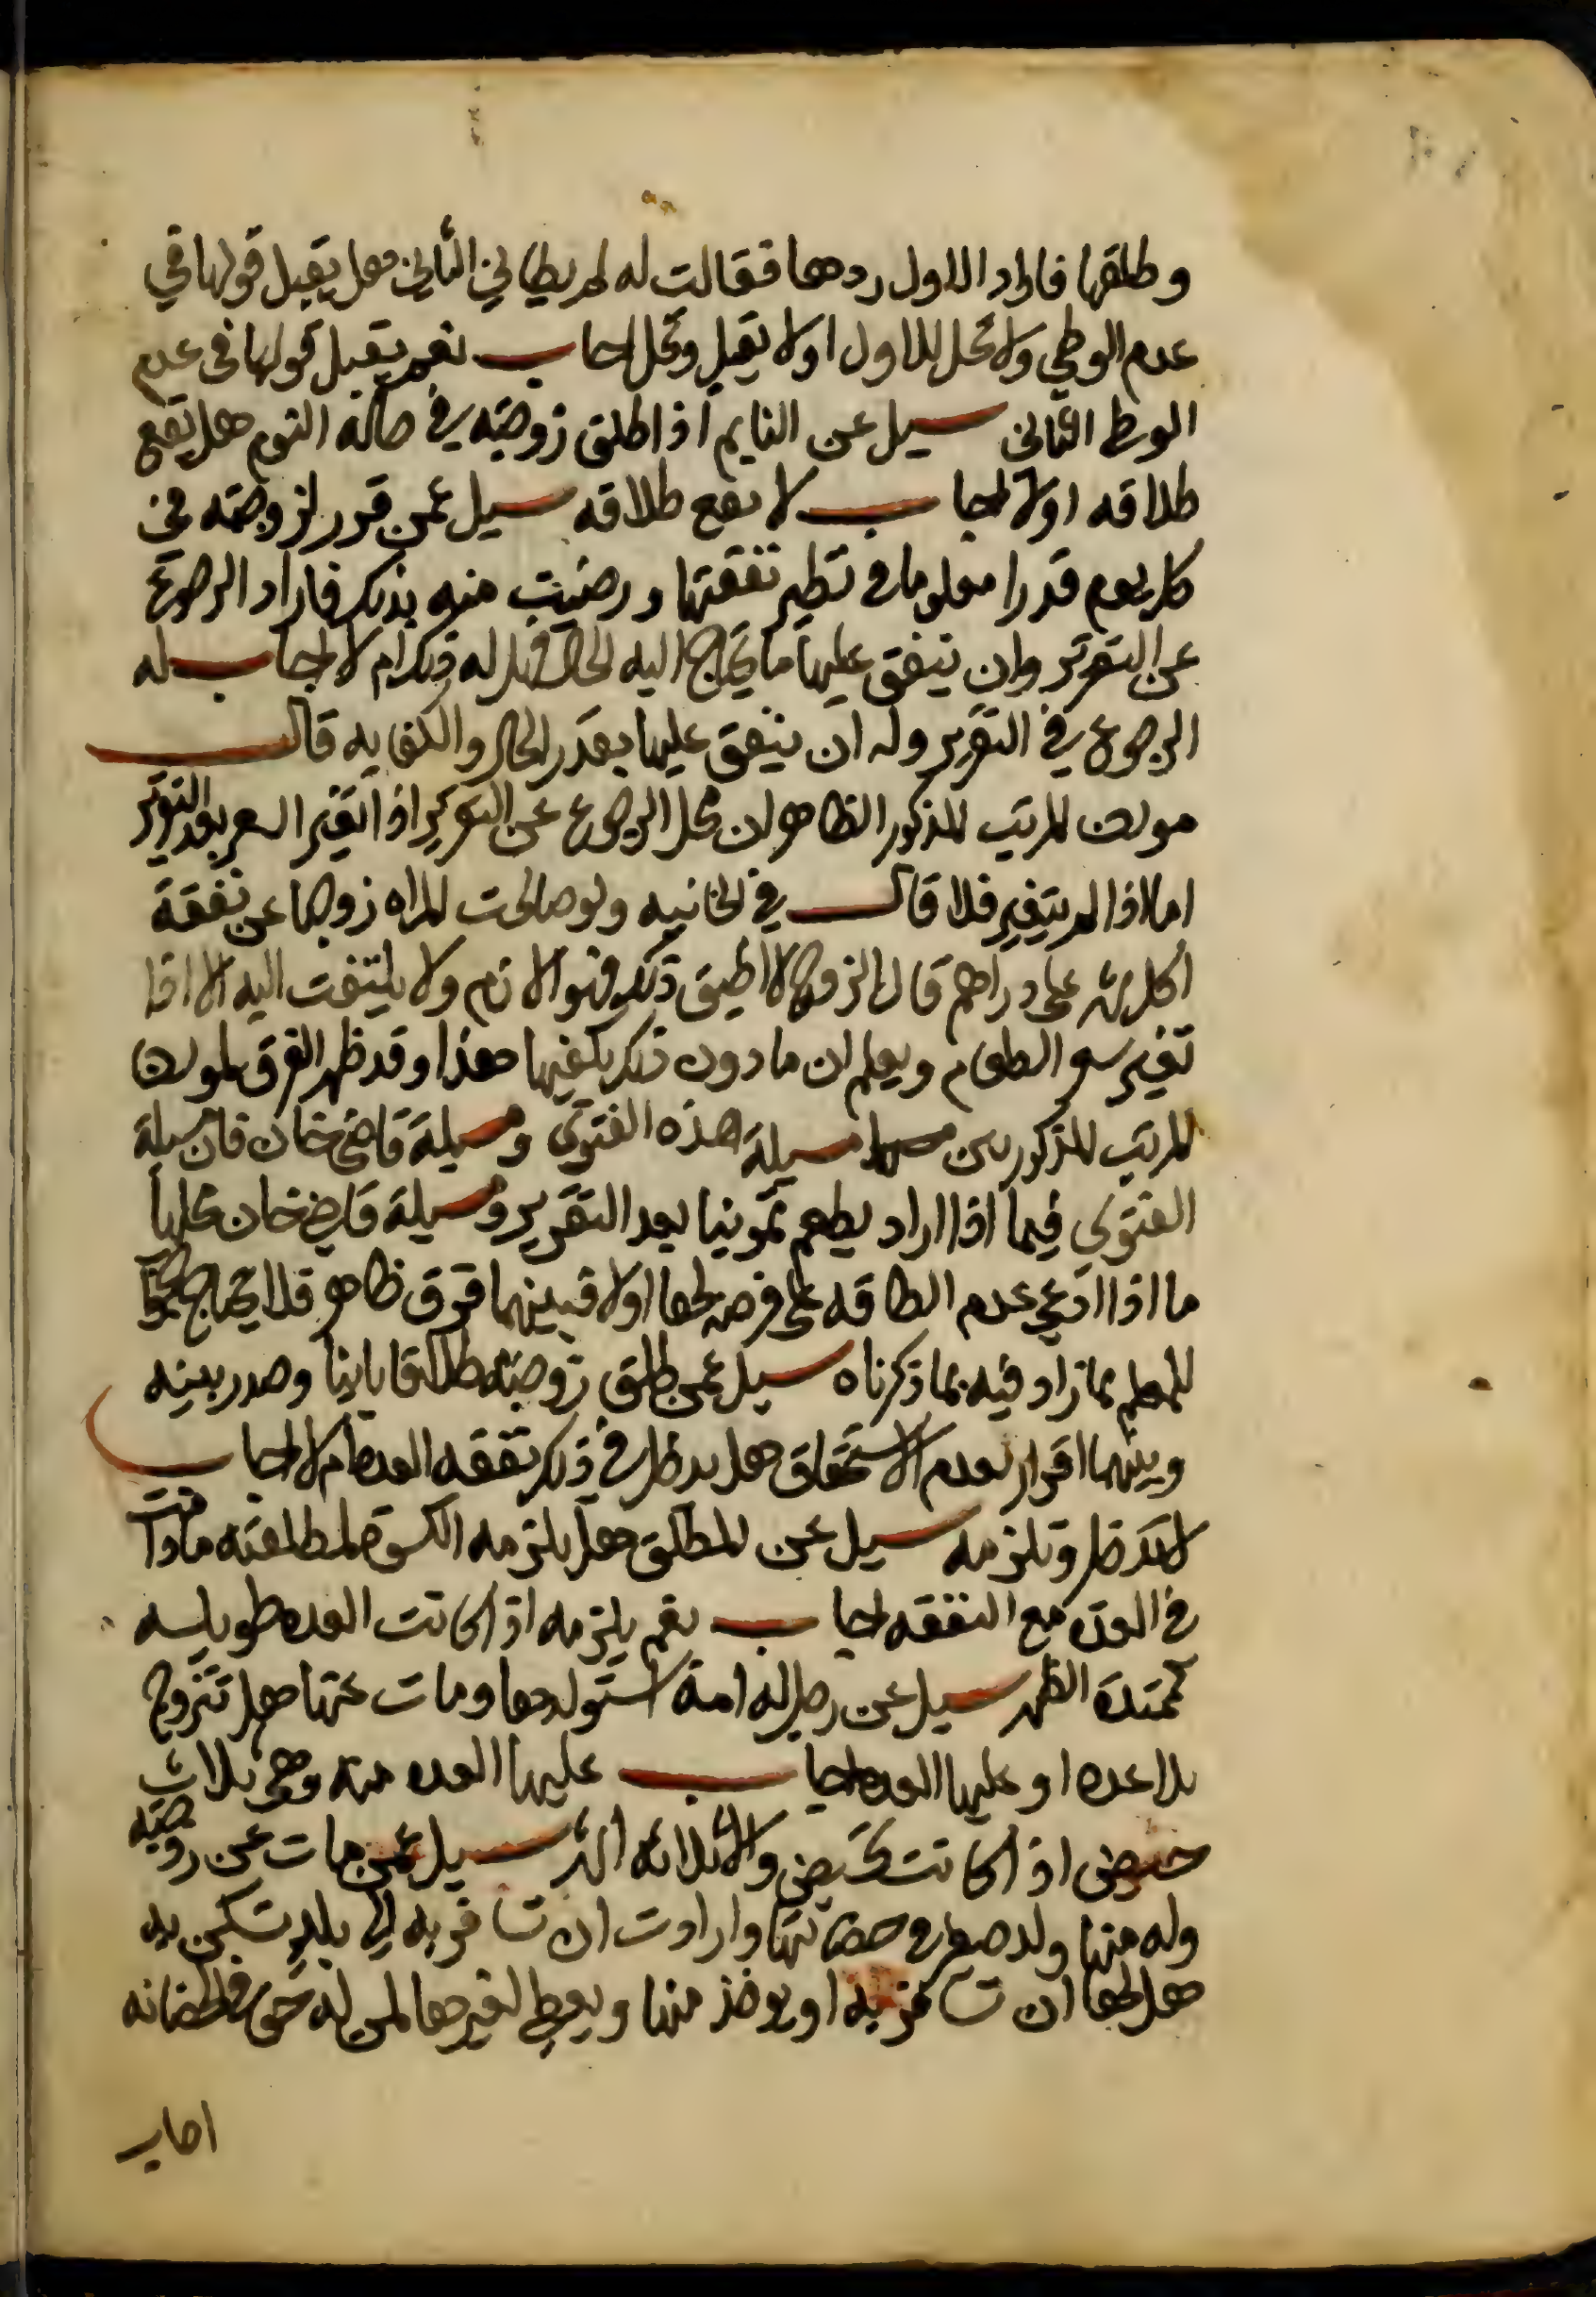 وطلقها فاراد الاول ردها فقالت له لم يطاني الثاني هل يقبل قولها في
عدم الوطي ولا تحل للاول اولا يقبل وتحل اجاب نعم يقبل قولها في عدم
الوطى الثاني سيل عن النايم اذا طلق زوجته في حالة النوم هل يقع
طلاقه اولا اجاب لا يقع طلاقه سيل عمن قرر لزوجته في
كل يوم قدرا معلوما في نظير نفقتها ورضيت منه بذلك فاراد الرجوع
عن التقرير وان ينفق عليها ما يحتاج اليه الحال فهل له ذلك ام لا اجاب له
الرجوع في التقرير وله ان ينفق عليها بقدر الحال والكفايه قال
مولف المرتب المذكور الظاهر ان محل الرجوع عن التقرير اذا تغير السعر بعد التقرير
اما اذا لم يتغير فلا قال في الخانيه ولو صالحت المراه زوجها عن نفقة
كل شهر على دراهم قال الزوج لا اطيق ذلك فهو لازم ولا يلتفت اليه الا اذا
تغير سعر الطعام ويعلم ان ما دون ذلك يكفيها هذا وقد ظهر الفرق لمولف
المرتب المذكور بين مسيلة هذه الفتوى ومسيلة قاضي خان فان مسيلة
الفتوى فيما اذا اراد يطعم تموينا بعد التقرير ومسيلة قاضي خان محلها
ما اذا ادعى عدم الطاقه على فرضه لها اولا فبينهما فرق ظاهر فلا يحتاج
للعلم بما زاد فيه بما ذكرناه سيل عمن طلق زوجته طلاقا باينا وصدر بينه
وبينهما اقرار بعدم الاستحقاق هل يدخل في ذلك نفقه العده ام لا اجاب
لا تدخل وتلزمه سيل عن المطلق هل يلزمه الكسوة لمطلقته ما دامت
في العدة مع النفقه اجاب نعم يلزمه اذا كانت العده طويله
كممتدة الطهر سيل عن رجل له امة استولدها ومات عنها هل تتزوج
بلا عده او عليها العده اجاب عليها العده منه وهي ثلاث
حيض اذا كانت تحيض والا ثلاثه اشهر سيل عمن مات عن زوجته
وله منها ولد صغير في حضانتها وارادت ان تسافر به الى بلد تسكن به
هل لها ان تسافر به او يوخذ منها ويعطى لغيرها لمن له حق الحضانه
اجاب